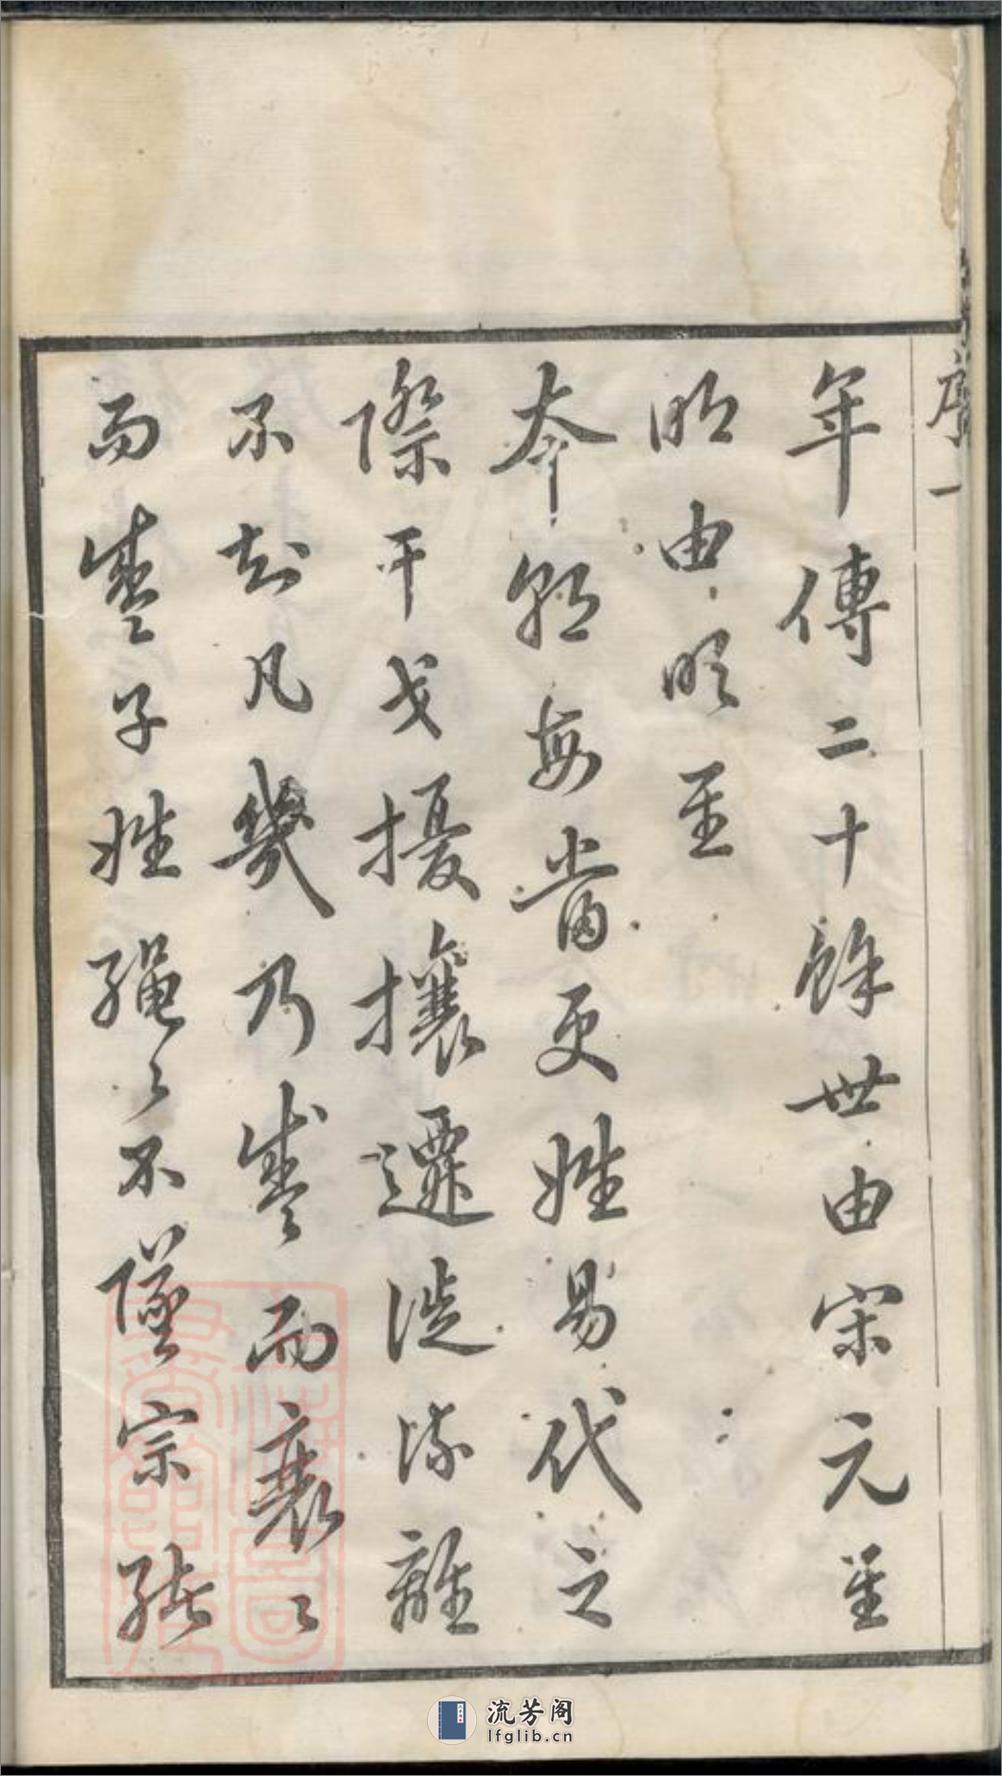 序 一
年傳二十餘世由宋元至
明由明至
本朝每當更姓易代之
際干戈擾攘遷徙流離
不知凡幾乃盛而衰〻
而盛子姓繩〻不墜宗
流芳阁
lfglib.cn